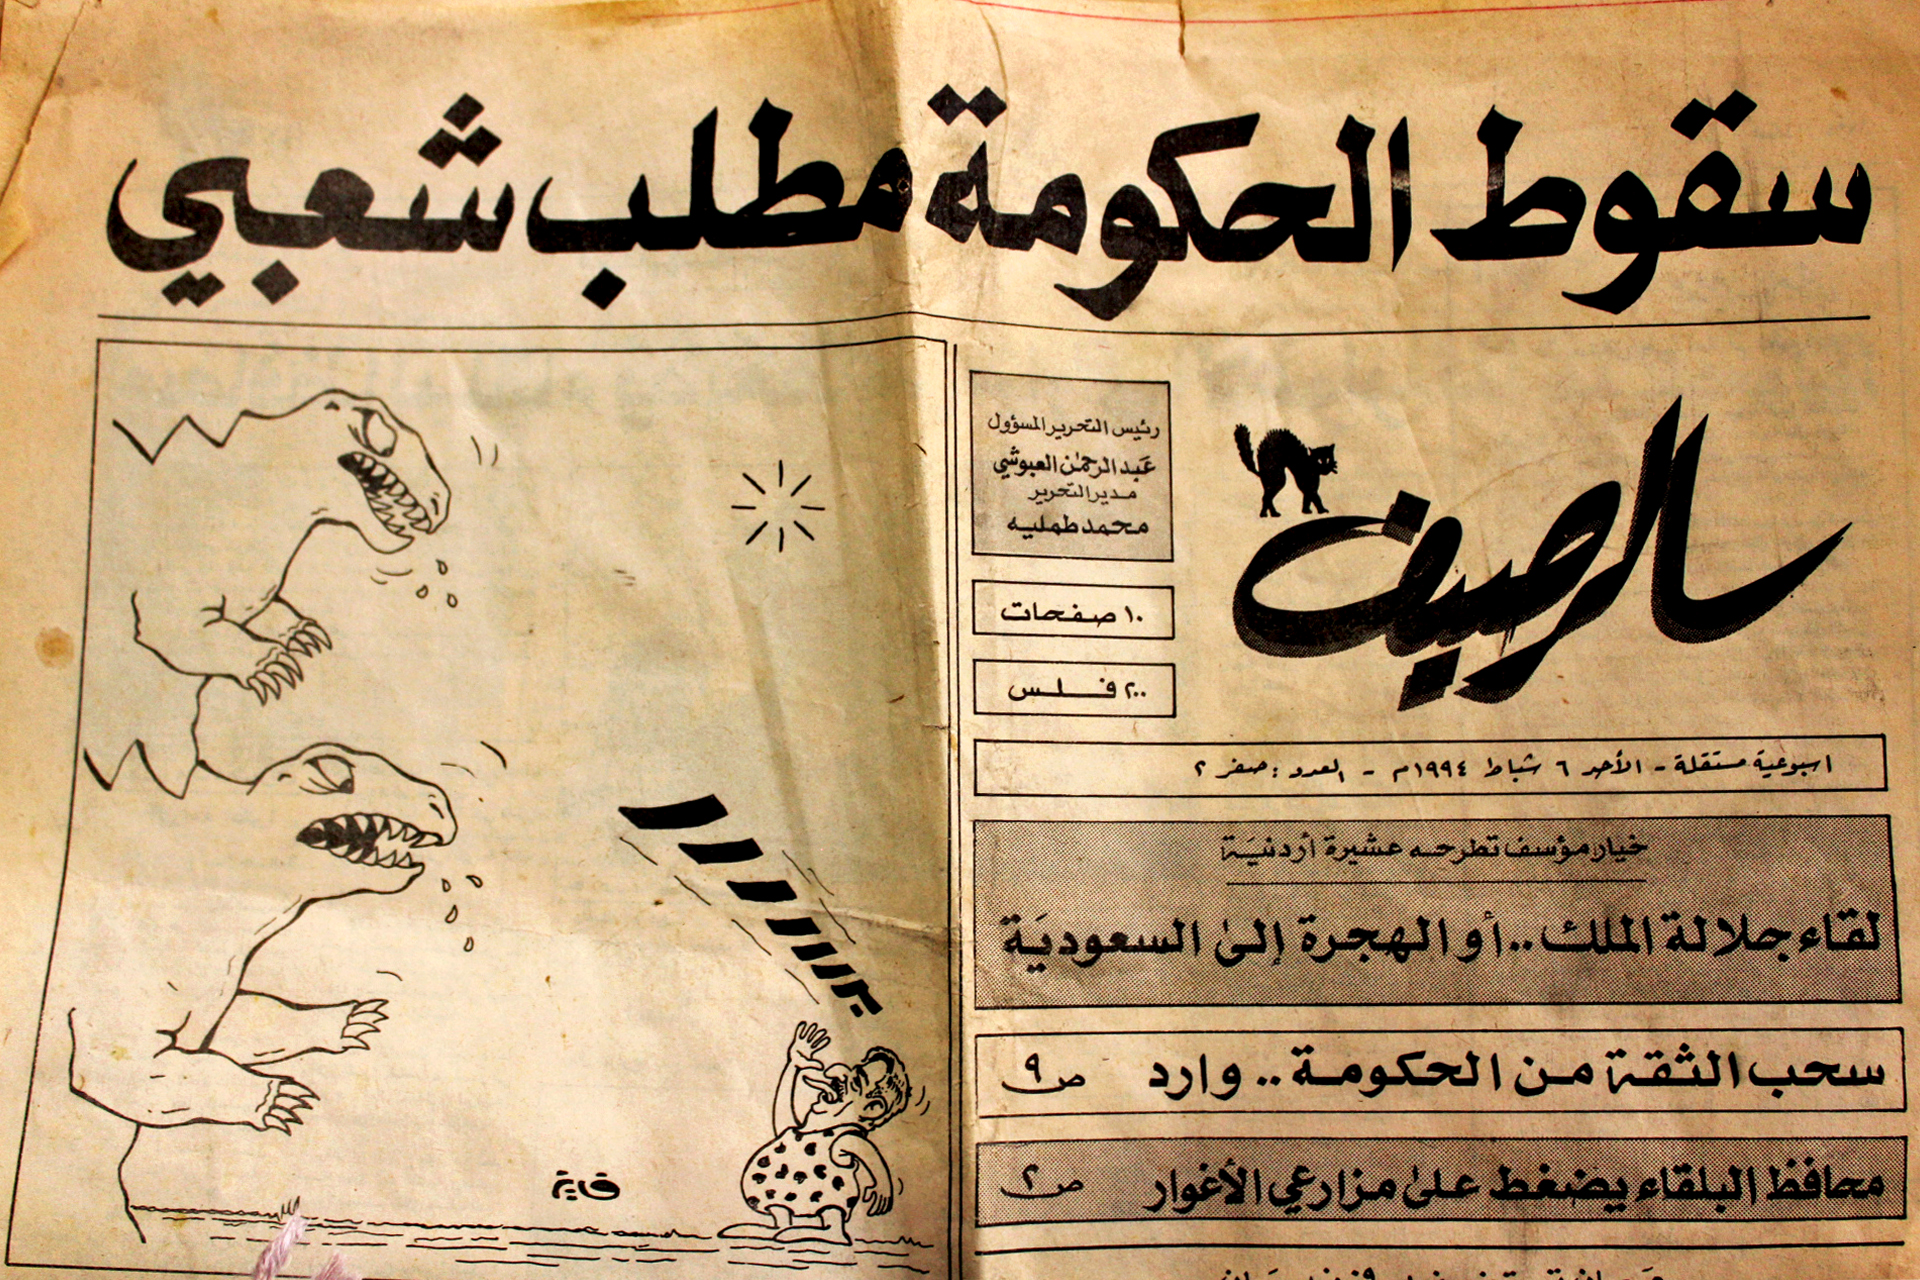 سقوط الحكومة مطلب شعبي
الرصيف
رئيس التحرير المسؤول
عبد الرحمن العبوشي
مدير التحرير
محمد طمليه
١٠ صفحات
٢٠٠ فلس
اسبوعية مستقلة - الأحد ٦ شباط ١٩٩٤م - العدد : صفر ٢
خيار مؤسف تطرحه عشيرة أردنية
لقاء جلالة الملك .. أو الهجرة إلى السعودية
سحب الثقة من الحكومة .. وارد ص ٩
محافظ البلقاء يضغط على مزارعي الأغوار ص ٢